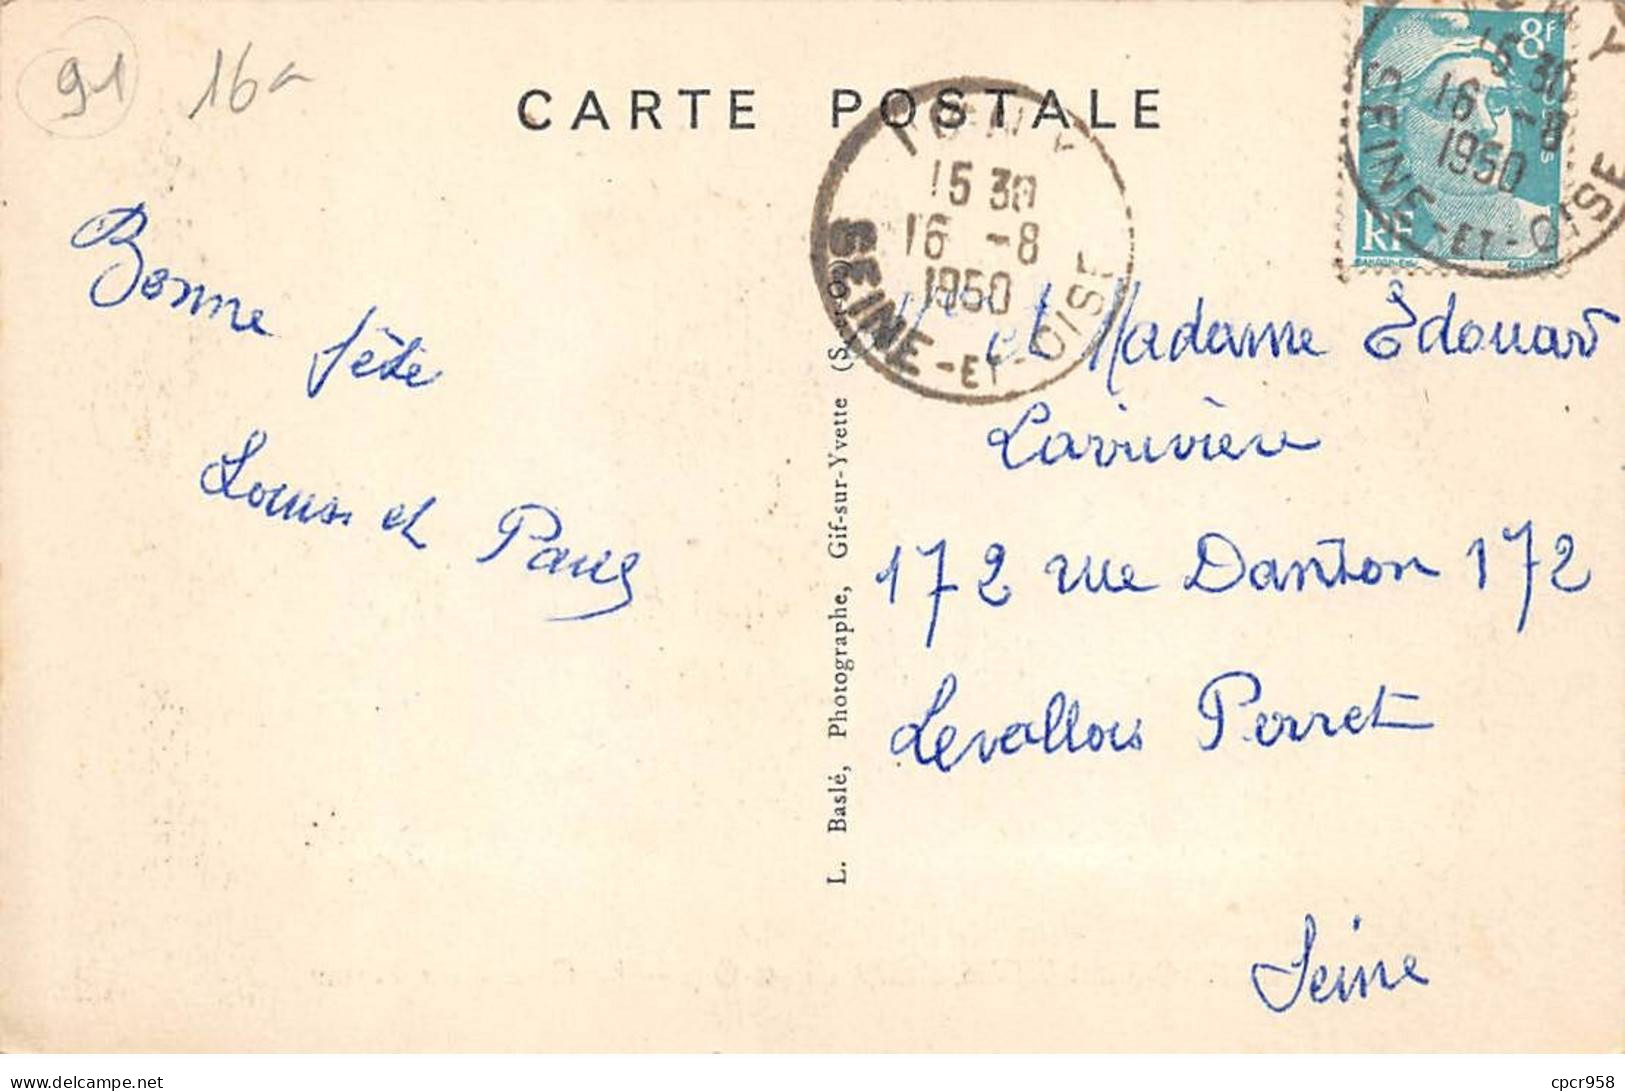 91 16
CARTE POSTALE
8f
15 30
16 -8
1950
SEINE-ET-OISE
RF
15 30
16 -8
1950
SEINE-ET-OISE
Bonne
fête
Louis et Paul
L. Baslé, Photographe, Gif-sur-Yvette (S.-et-O.)
et Madame Edouard
Larivière
172 rue Danton 172
Levallois Perret
Seine
delcampe.net
cpcr958